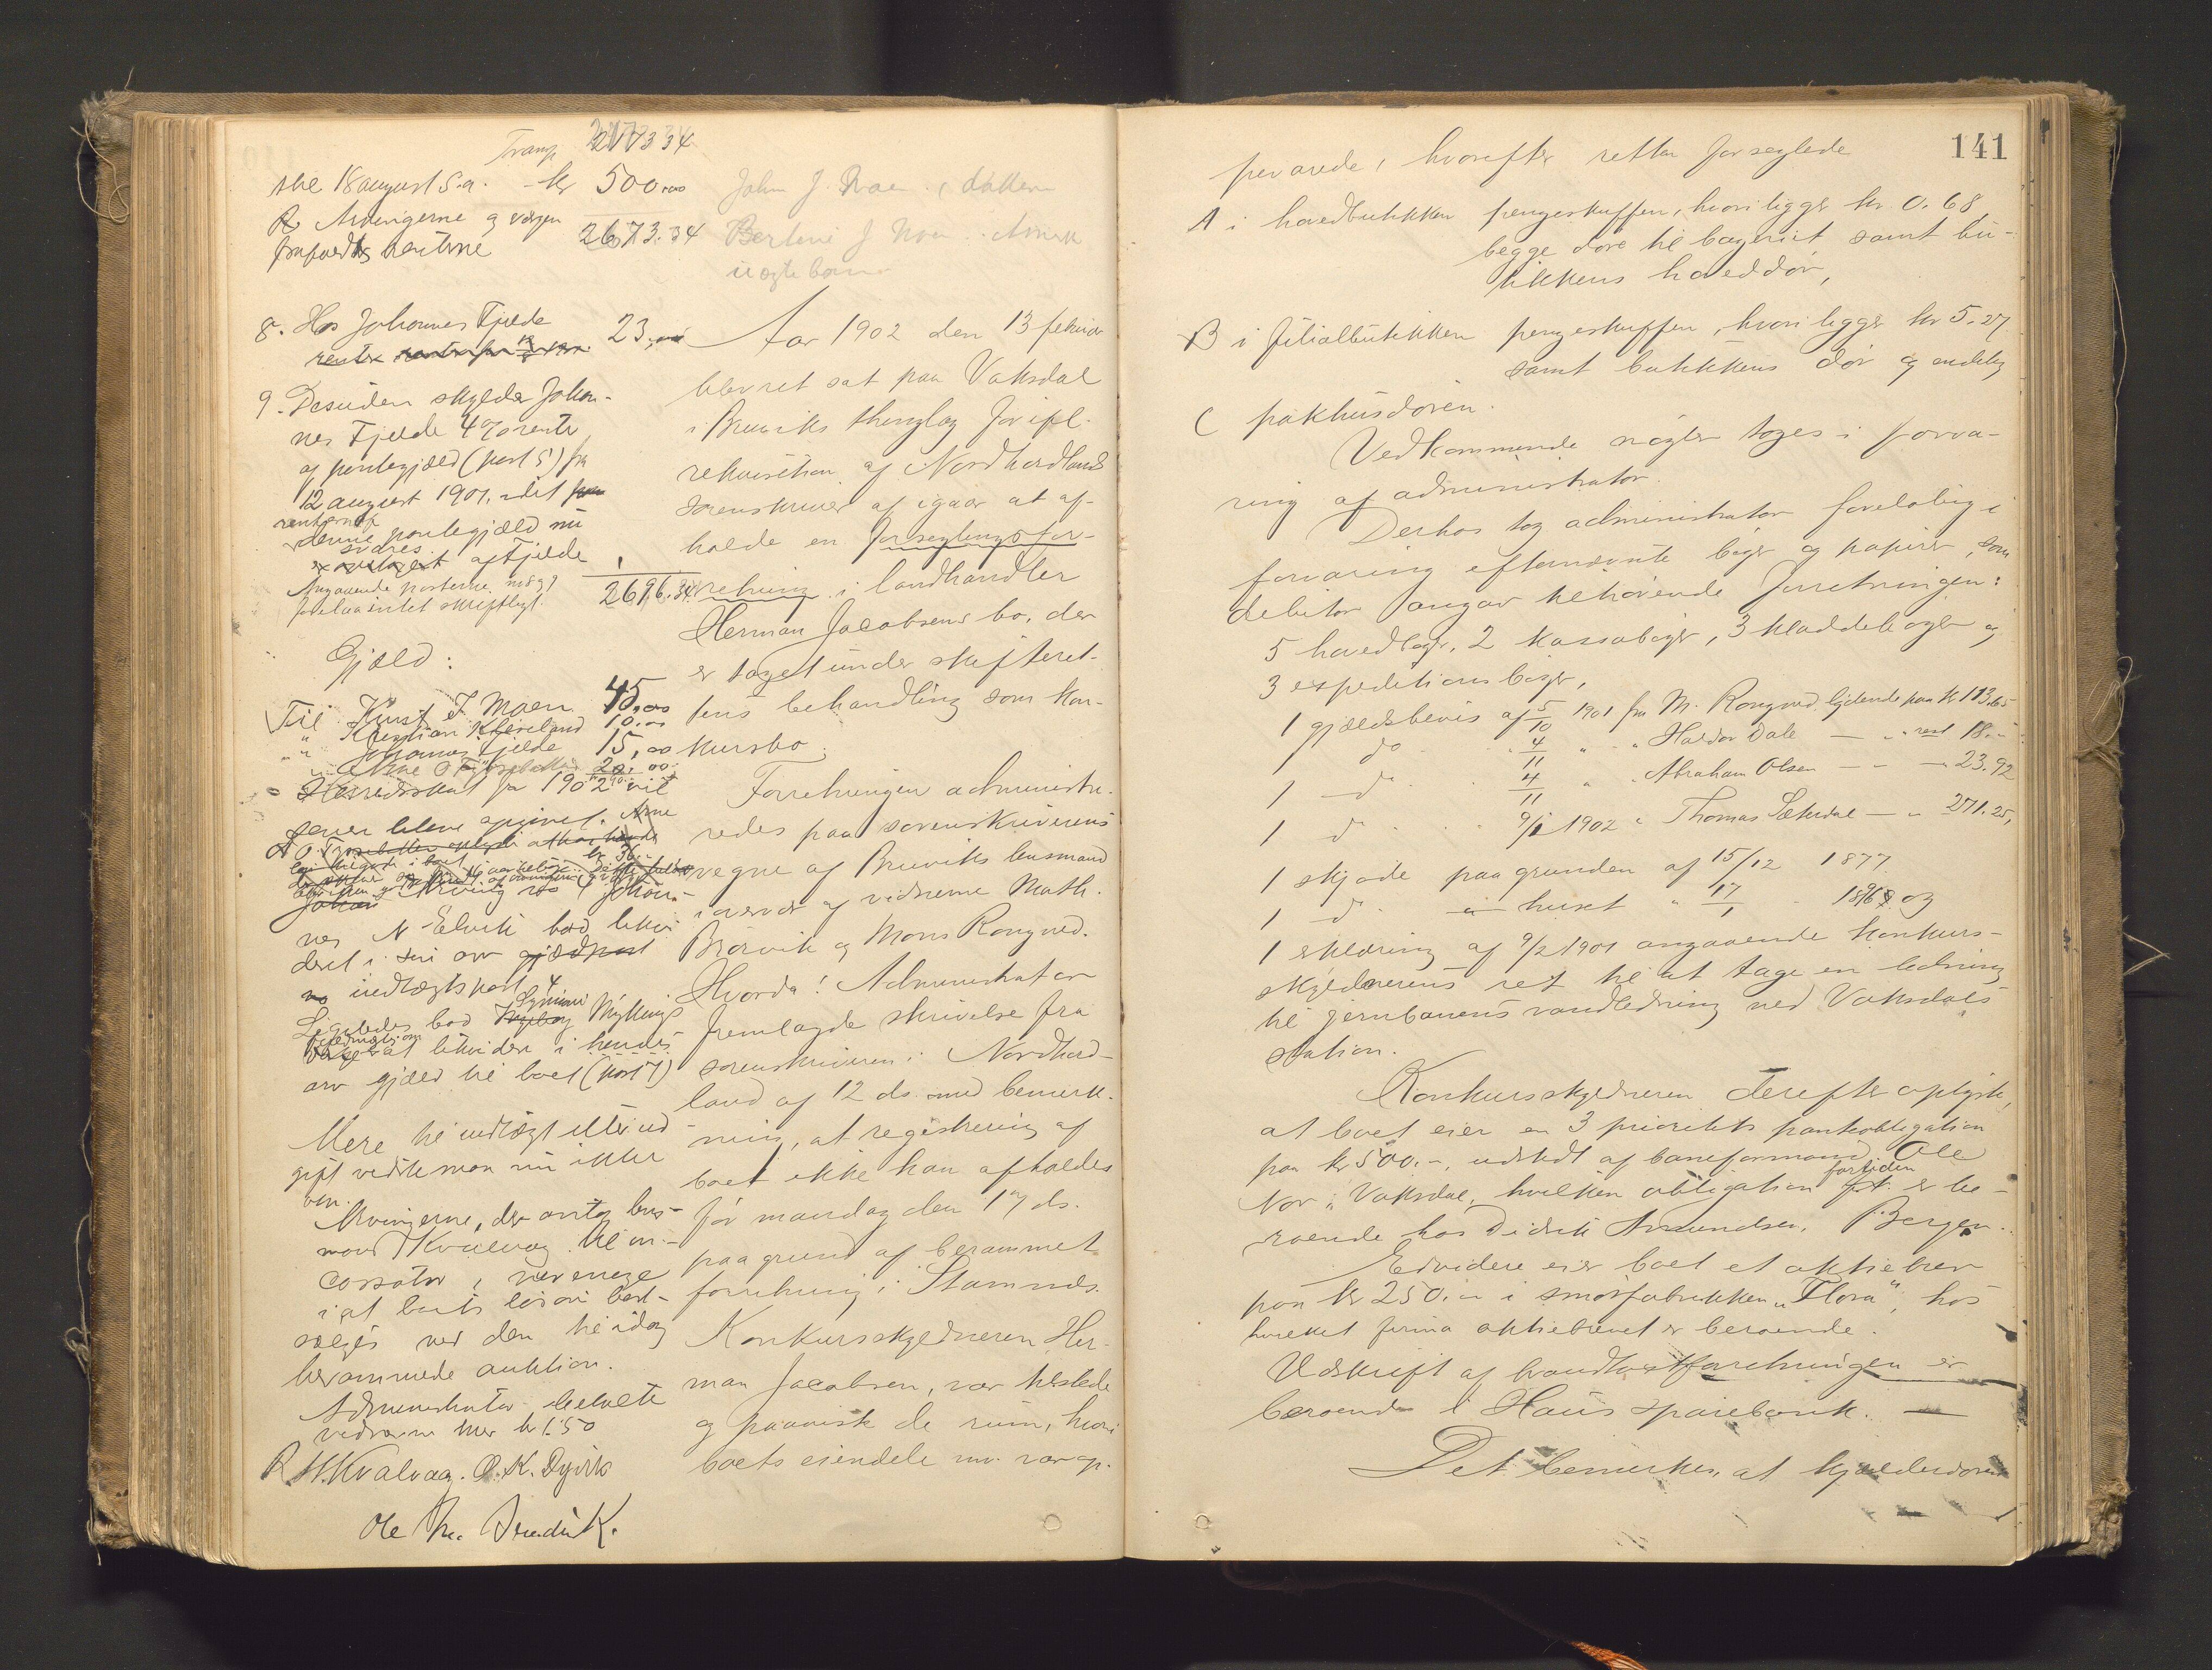 Transp. 2173 34
ske 18 august s.a. - kr 500.00
Arvingerne og vergen 2673.34
frafaldt renterne
John J. Moen
Berteni J Moen Amerik
uegte barn
8. Hos Johannes Fjelde 23,00
9. Desuden skylder Johan-
nes Fjelde 4% rente
af pantegjæld (post 5) fra
12 august 1901, idet
renterne af
denne pantegjæld nu
svares
af Fjelde
Angaaende posterne no 8 og 9
forelaa intet skriftligt.
2696.34
Gjæld:
Til Knut J. Moen 45,00
" Kristian Kleiveland 10,00
" Johannes Fjelde 15,00
20,00
Herredsskat for 1902 vil
senere bleve opgivet. Arne
Arving no 4 Johan-
nes N Elvik bad likvi-
deret i sin arv
indtægtspost 4
Ligeledes bad Myking
at likvidere i hendes
arv gjæld til boet (post 7)
Mere til indtægt eller ud-
gift vidste man nu ikke
om.
Arvingerne, der antog lens-
mand Kvalvaag til in-
cassator, var enige
i at boets løsøre bort-
sælges ved den til idag
berammede auktion.
Administrator betalte
vidnerne hver kr 1.50
H. Kvalvaag. O. K. Dyvik
Aar 1902 den 13 februar
blev ret sat paa Vaksdal
i Bruviks thinglag for ifl.
rekvisition af Nordhordlands
sorenskriver af igaar at af-
holde en forseglingsfor-
retning i landhandler
Herman Jacobsens bo, der
er taget under skifteret-
tens behandling som kon-
kursbo.
Forretningen administre-
redes paa sorenskriverens
vegne af Bruviks lensmand
i overvær af vidnerne Math.
Brørvik og Mons Rongved.
Hvorda! Administrator
fremlagde skrivelse fra
sorenskriveren i Nordhord-
land af 12 ds. med bemerk-
ning, at registrering af
boet ikke kan afholdes
før mandag den 17 ds.
paa grund af berammet
forretning i Stamnes.
Konkursskyldneren, Her-
man Jacobsen, var tilstede
og paaviste de rum, hvori
boets eiendele nu var op-
141
pevarede, hvorefter retten forseglede
A i hovedbutikken pengeskuffen, hvori ligger kr. 0.68
begge døre til bageriet samt bu-
tikkens hoveddør,
B i filialbutikken pengeskuffen, hvori ligger kr 5.27
samt butikkens dør og endelig
C pakhusdøren.
Vedkommende nøgler toges i forva-
ring af administrator.
Derhos tog administrator foreløbig i
forvaring efternævnte bøger og papirer, som
debitor angav tilhørende forretningen:
5 hovedbøger, 2 kassabøger, 3 kladdebøger og
3 expeditionsbøger,
1 gjældsbevis af 5/10 1901 fra M. Rongved, lydende paa kr 113.65
1 do " 4/11 " - " Haldor Dale — " rest 18.-
1 — do 4/11 " " Abraham Olsen — - — 23.92
1 do 9/1 1902 " Thomas Sæterdal — " 271.25,
1 skjøde paa grunden af 15/12 1877.
1 do - " - huset " 17/1 1898 og
1 erklæring af 9/2 1901 angaaende konkurs-
skyldnerens ret til at tage en ledning
til jernbanens vandledning ved Vaksdals
station.
Konkursskyldneren derefter oplyste,
at boet eier en 3 prioritets panteobligation
paa kr 500.-, udstedt af baneformand Ole
Nor, Vaksdal, hvilken obligation fortiden er be-
roende hos Didrik Amundsen, Bergen.
Endvidere eier boet et aktiebrev
paa kr 250.00 i smørfabrikken "Flora", hos
hvilket firma aktiebrevet er beroende.
Udskrift af brandtaxtforretningen er
beroende i Haus sparebank. —
Det bemerkes, at kjælderdøren